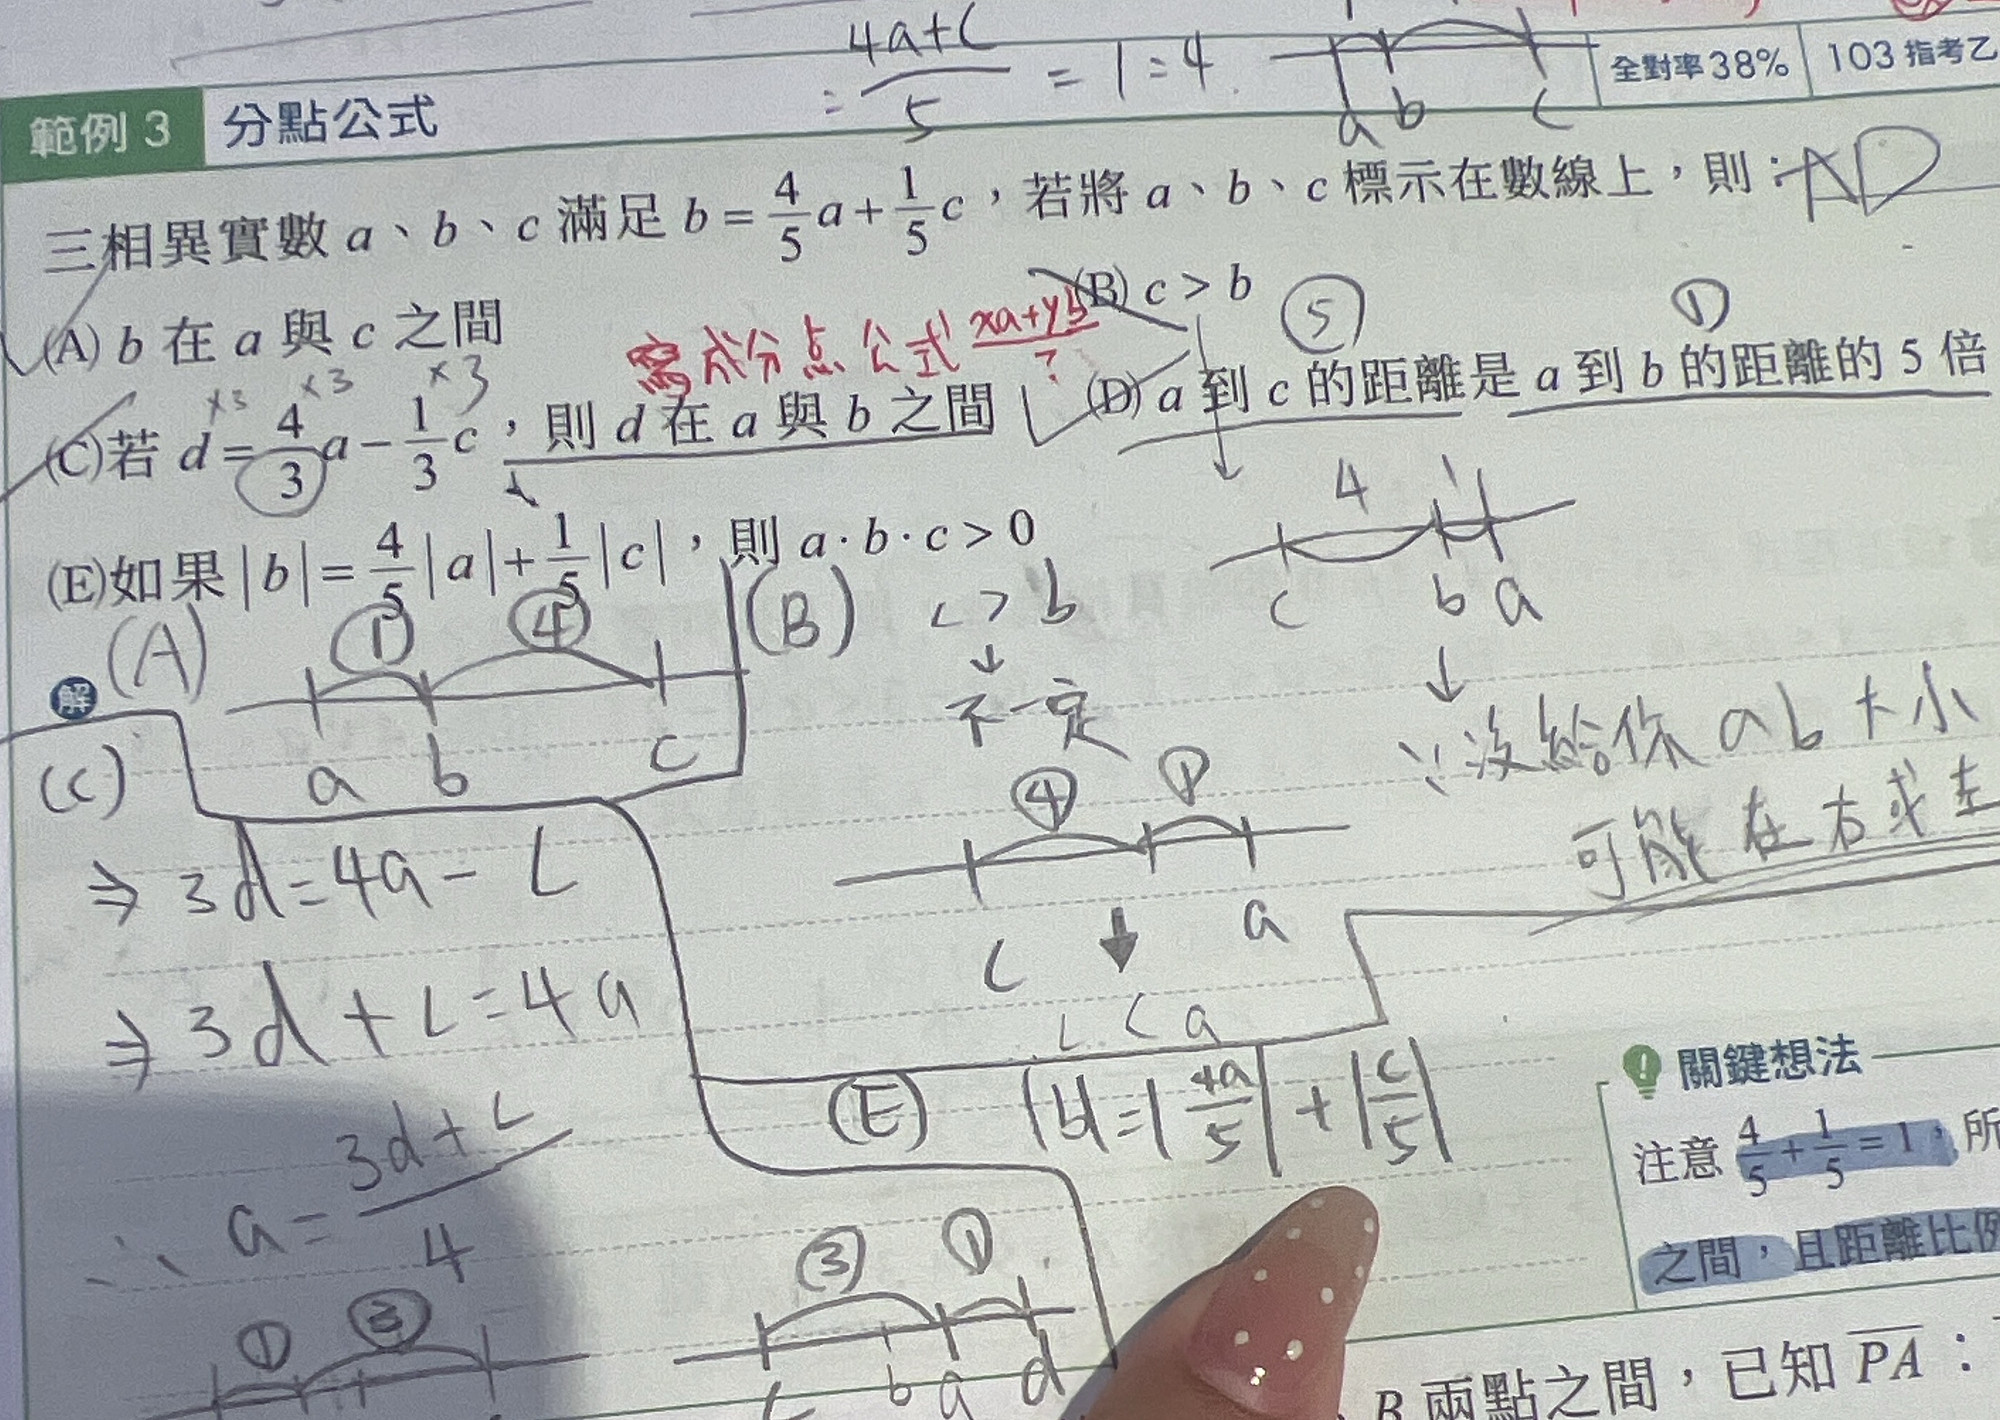 = 4a+c/5 = 1:4
a b c
全對率38% 103 指考乙
範例 3 分點公式
三相異實數 a、b、c 滿足 b = 4/5 a + 1/5 c，若將 a、b、c 標示在數線上，則： AD
(A) b 在 a 與 c 之間
(B) c > b
寫成分点公式 xa+yb/?
⑤ ①
×3 ×3 ×3
(C)若 d = 4/3 a − 1/3 c，則 d 在 a 與 b 之間
(D) a 到 c 的距離是 a 到 b 的距離的 5 倍
4 1
c b a
(E)如果 |b| = 4/5 |a| + 1/5 |c|，則 a·b·c > 0
解
(A) ① ④
a b c
(B) c > b
↓
不一定
④ ①
c a
↓
c < a
↓
∵沒給你 ab 大小
可能在右或左
(C)
⇒ 3d = 4a − c
⇒ 3d + c = 4a
∴ a = 3d+c/4
① ③
③ ①
c b a d
(E) |b| = |4a/5| + |c/5|
關鍵想法
注意 4/5 + 1/5 = 1，所
之間，且距離比例
B 兩點之間，已知 PA：